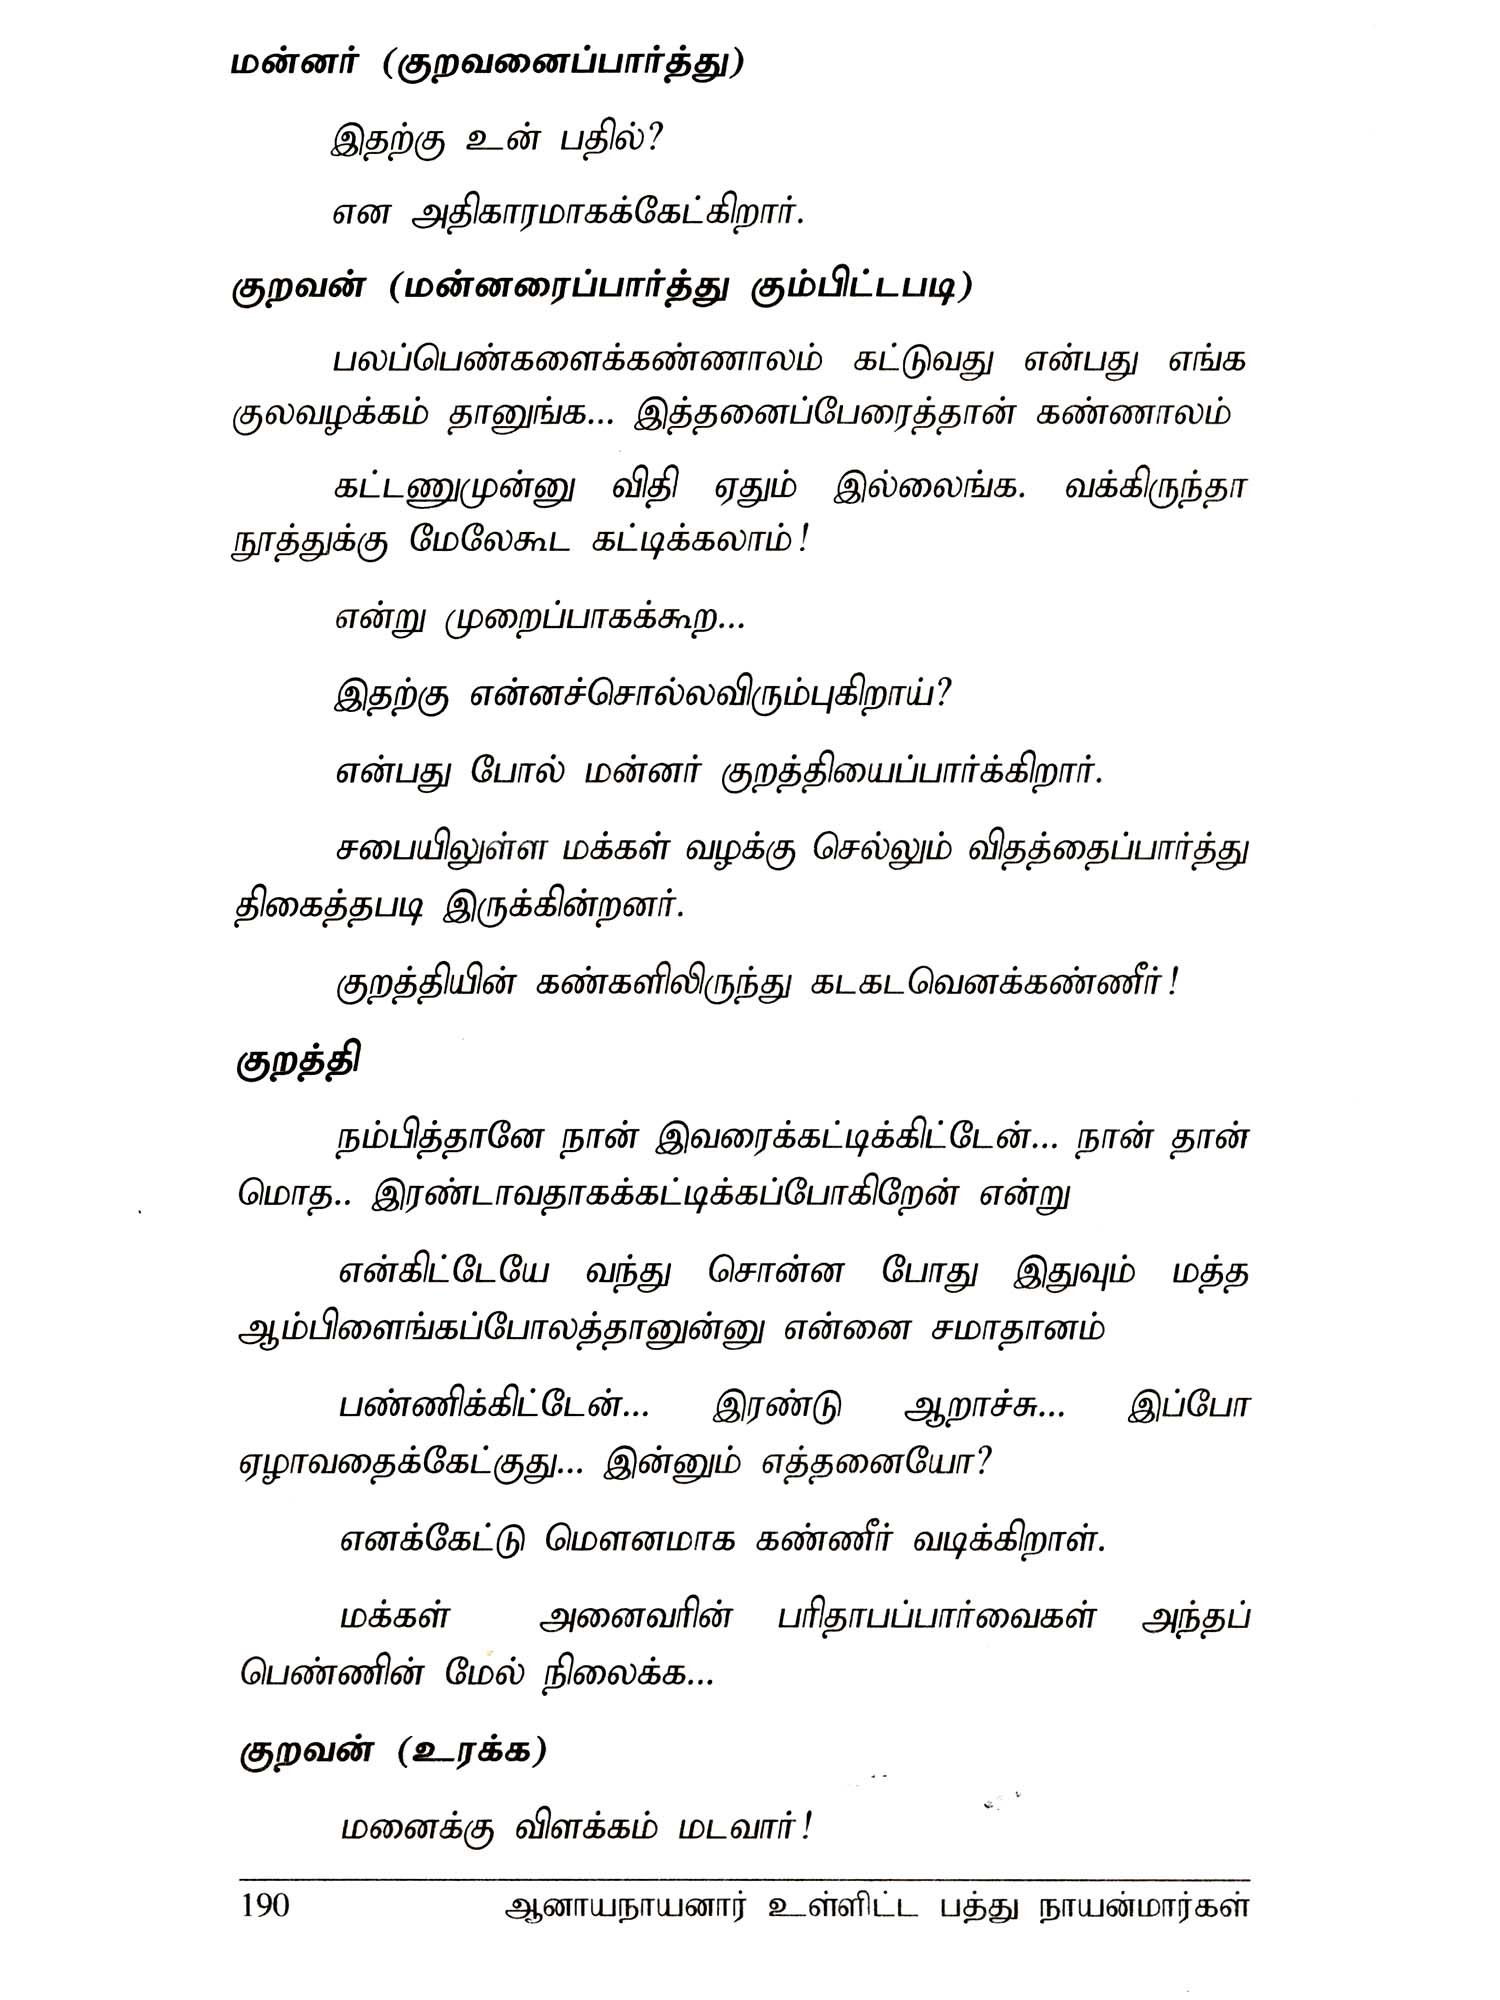 மன்னர் (குறவனைப்பார்த்து)
இதற்கு உன் பதில்?
என அதிகாரமாகக்கேட்கிறார்.
குறவன் (மன்னரைப்பார்த்து கும்பிட்டபடி)
பலப்பெண்களைக்கண்ணாலம் கட்டுவது என்பது எங்க
குலவழக்கம் தானுங்க... இத்தனைப்பேரைத்தான் கண்ணாலம்
கட்டணுமுன்னு விதி ஏதும் இல்லைங்க. வக்கிருந்தா
நூத்துக்கு மேலேகூட கட்டிக்கலாம்!
என்று முறைப்பாகக்கூற...
இதற்கு என்னச்சொல்லவிரும்புகிறாய்?
என்பது போல் மன்னர் குறத்தியைப்பார்க்கிறார்.
சபையிலுள்ள மக்கள் வழக்கு செல்லும் விதத்தைப்பார்த்து
திகைத்தபடி இருக்கின்றனர்.
குறத்தியின் கண்களிலிருந்து கடகடவெனக்கண்ணீர்!
குறத்தி
நம்பித்தானே நான் இவரைக்கட்டிக்கிட்டேன்... நான் தான்
மொத.. இரண்டாவதாகக்கட்டிக்கப்போகிறேன் என்று
என்கிட்டேயே வந்து சொன்ன போது இதுவும் மத்த
ஆம்பிளைங்கப்போலத்தானுன்னு என்னை சமாதானம்
பண்ணிக்கிட்டேன்... இரண்டு ஆறாச்சு... இப்போ
ஏழாவதைக்கேட்குது... இன்னும் எத்தனையோ?
எனக்கேட்டு மௌனமாக கண்ணீர் வடிக்கிறாள்.
மக்கள் அனைவரின் பரிதாபப்பார்வைகள் அந்தப்
பெண்ணின் மேல் நிலைக்க...
குறவன் (உரக்க)
மனைக்கு விளக்கம் மடவார்!
190 ஆனாயநாயனார் உள்ளிட்ட பத்து நாயன்மார்கள்